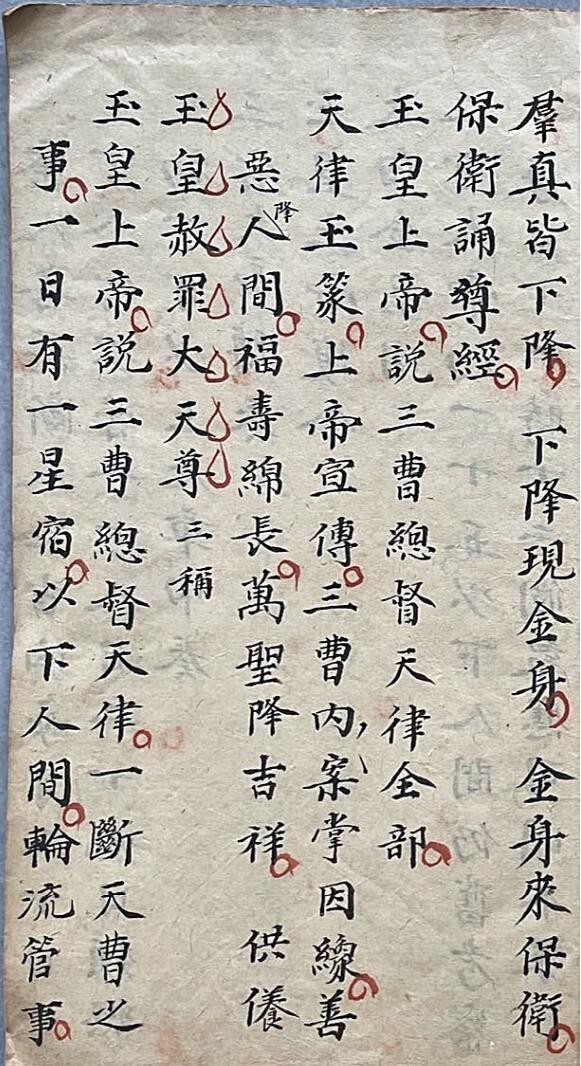 羣真皆下降下降現金身金身來保衛
保衛誦尊經
玉皇上帝說三曹總督天律全部
天律玉篆上帝宣傳三曹內案掌因緣善
惡人降間福壽綿長萬聖降吉祥 供養
玉皇赦罪大天尊 三稱
玉皇上帝說三曹總督天律一斷天曹之
事一日有一星宿以下人間輪流管事